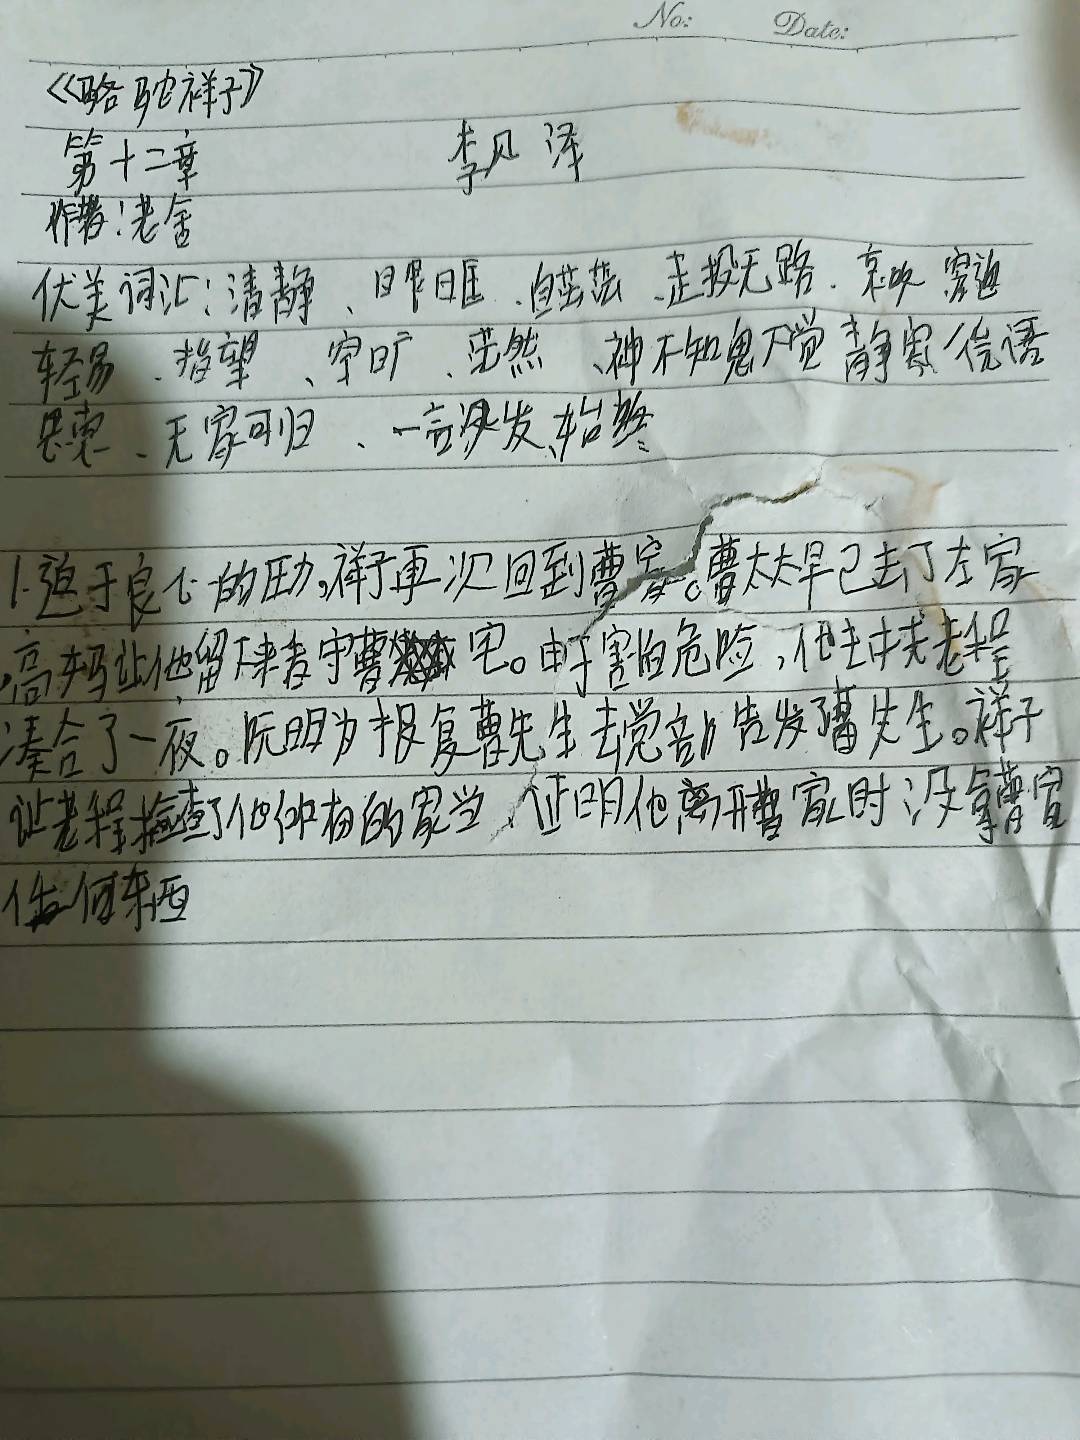 No: Date:
《骆驼祥子》
第十二章 李 泽
作者：老舍
优美词汇：清静、白茫茫、走投无路、哀叹 窘迫
轻易、指望、空旷、茫然、神不知鬼不觉 静寂
思索、无家可归、一言没发、始终
1.迫于良心的压力,祥子再次回到曹家。曹太太早已去了左家
,高妈让他留下来看守曹宅。由于害怕危险,他去找老程
凑合了一夜。阮明为报复曹先生去党部告发了曹先生。祥子
让老程检查了他仰有的家当 证明他离开曹家时没拿曹宜
任何东西